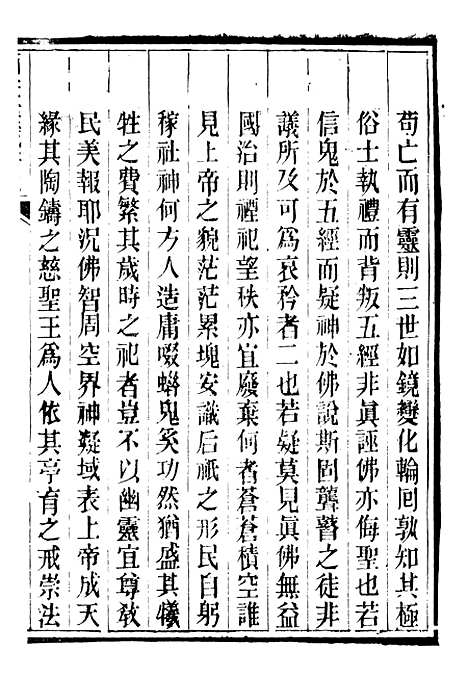 苟亡而有靈則三世如鏡變化輪囘孰知其極
俗士執禮而背叛五經非眞誣佛亦侮聖也若
信鬼於五經而疑神於佛說斯固聾瞽之徒非
議所及可爲哀矜者二也若疑莫見眞佛無益
國治則禋祀望秩亦宜廢棄何者蒼蒼積空誰
見上帝之貌茫茫累塊安識后祇之形民自躬
稼社神何力人造庸畷蜡鬼奚功然猶盛其犧
牲之費繁其歲時之祀者豈不以幽靈宜尊敎
民美報耶況佛智周空界神凝域表上帝成天
緣其陶鑄之慈聖王爲人依其亭育之戒崇法